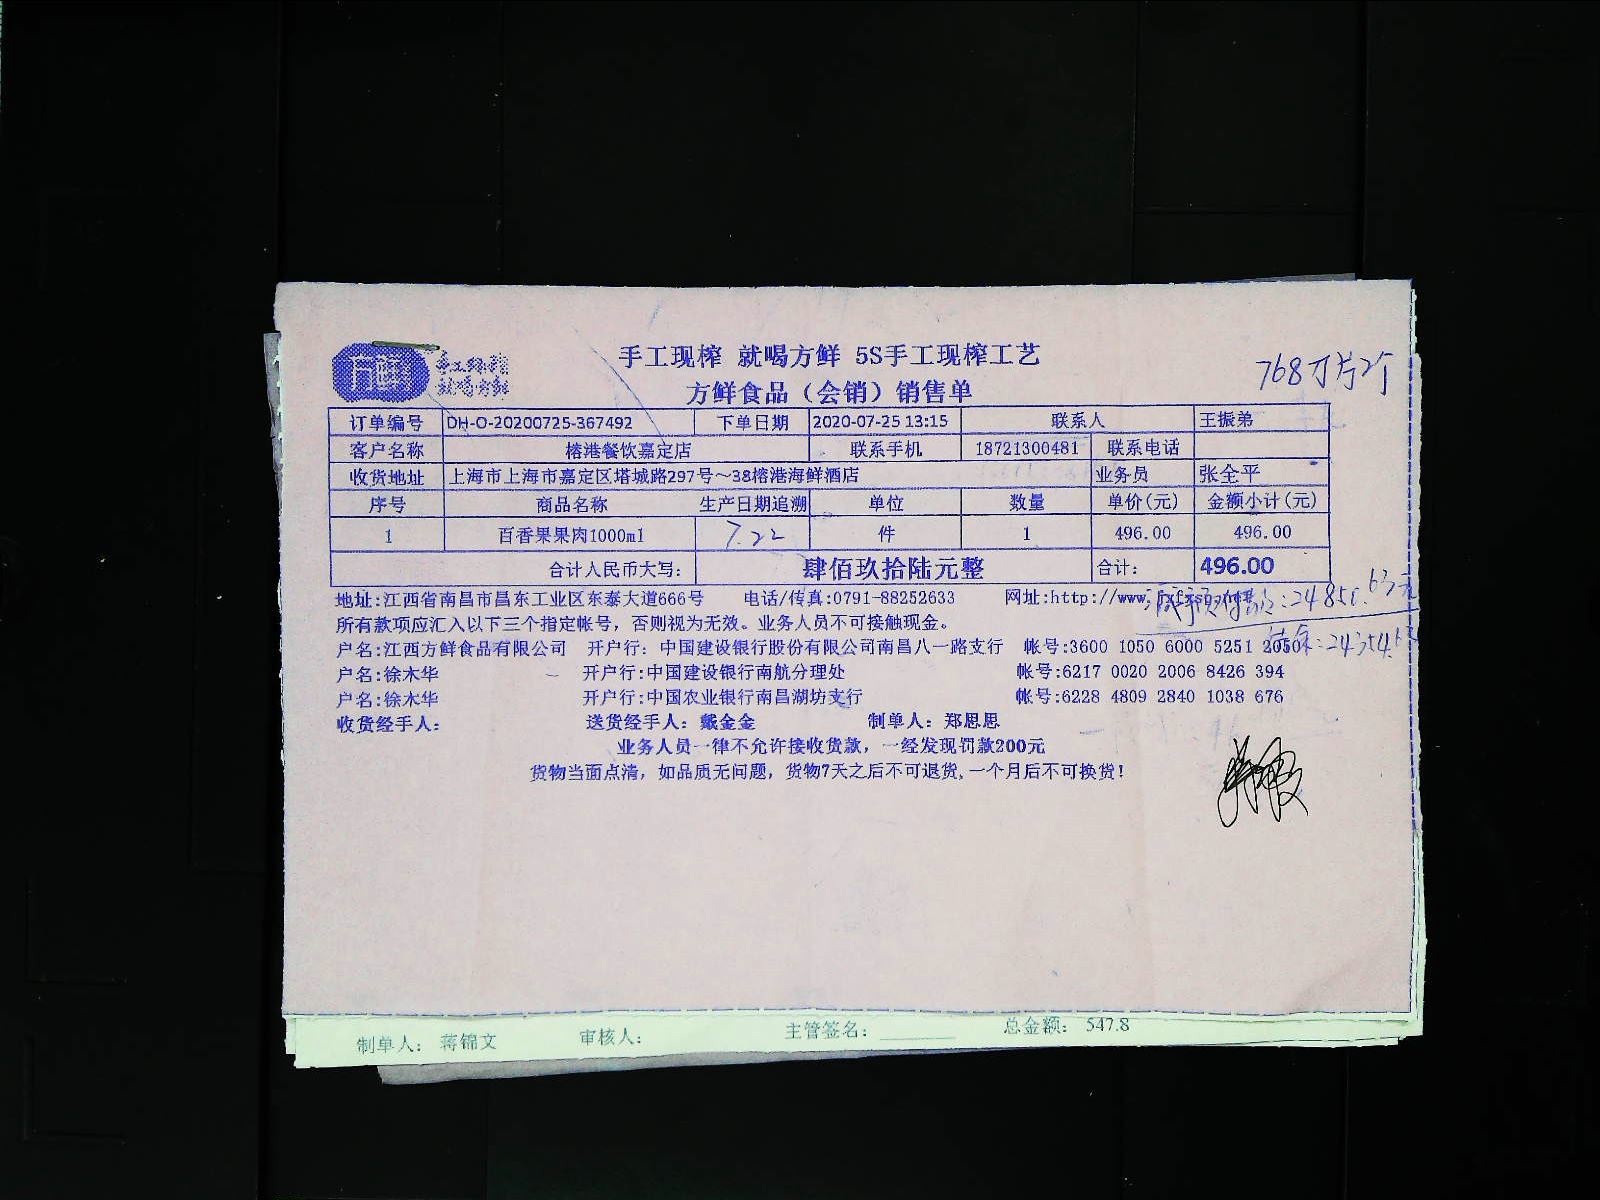 方鲜 手工现榨 就喝方鲜
手工现榨 就喝方鲜 5S手工现榨工艺
方鲜食品（会销）销售单
768
订单编号 DH-O-20200725-367492 下单日期 2020-07-25 13:15 联系人 王振弟
客户名称 榕港餐饮嘉定店 联系手机 18721300481 联系电话
收货地址 上海市上海市嘉定区塔城路297号～38榕港海鲜酒店 业务员 张全平
序号 商品名称 生产日期追溯 单位 数量 单价(元) 金额小计(元)
1 百香果果肉1000ml 7.22 件 1 496.00 496.00
合计人民币大写: 肆佰玖拾陆元整 合计: 496.00
地址:江西省南昌市昌东工业区东泰大道666号 电话/传真:0791-88252633 网址:http://www.jxfxsp.net
24850.63元
所有款项应汇入以下三个指定帐号，否则视为无效。业务人员不可接触现金。
户名:江西方鲜食品有限公司 开户行: 中国建设银行股份有限公司南昌八一路支行 帐号:3600 1050 6000 5251 2050
户名:徐木华 开户行:中国建设银行南航分理处 帐号:6217 0020 2006 8426 394
户名:徐木华 开户行:中国农业银行南昌湖坊支行 帐号:6228 4809 2840 1038 676
收货经手人: 送货经手人: 戴金金 制单人: 郑思思
业务人员一律不允许接收货款，一经发现罚款200元
货物当面点清，如品质无问题，货物7天之后不可退货,一个月后不可换货！
制单人: 蒋锦文 审核人: 主管签名: 总金额: 547.8